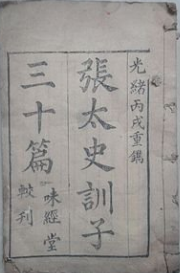 光緒丙戌重鐫
張太史訓子
三十篇
味經堂
較刊